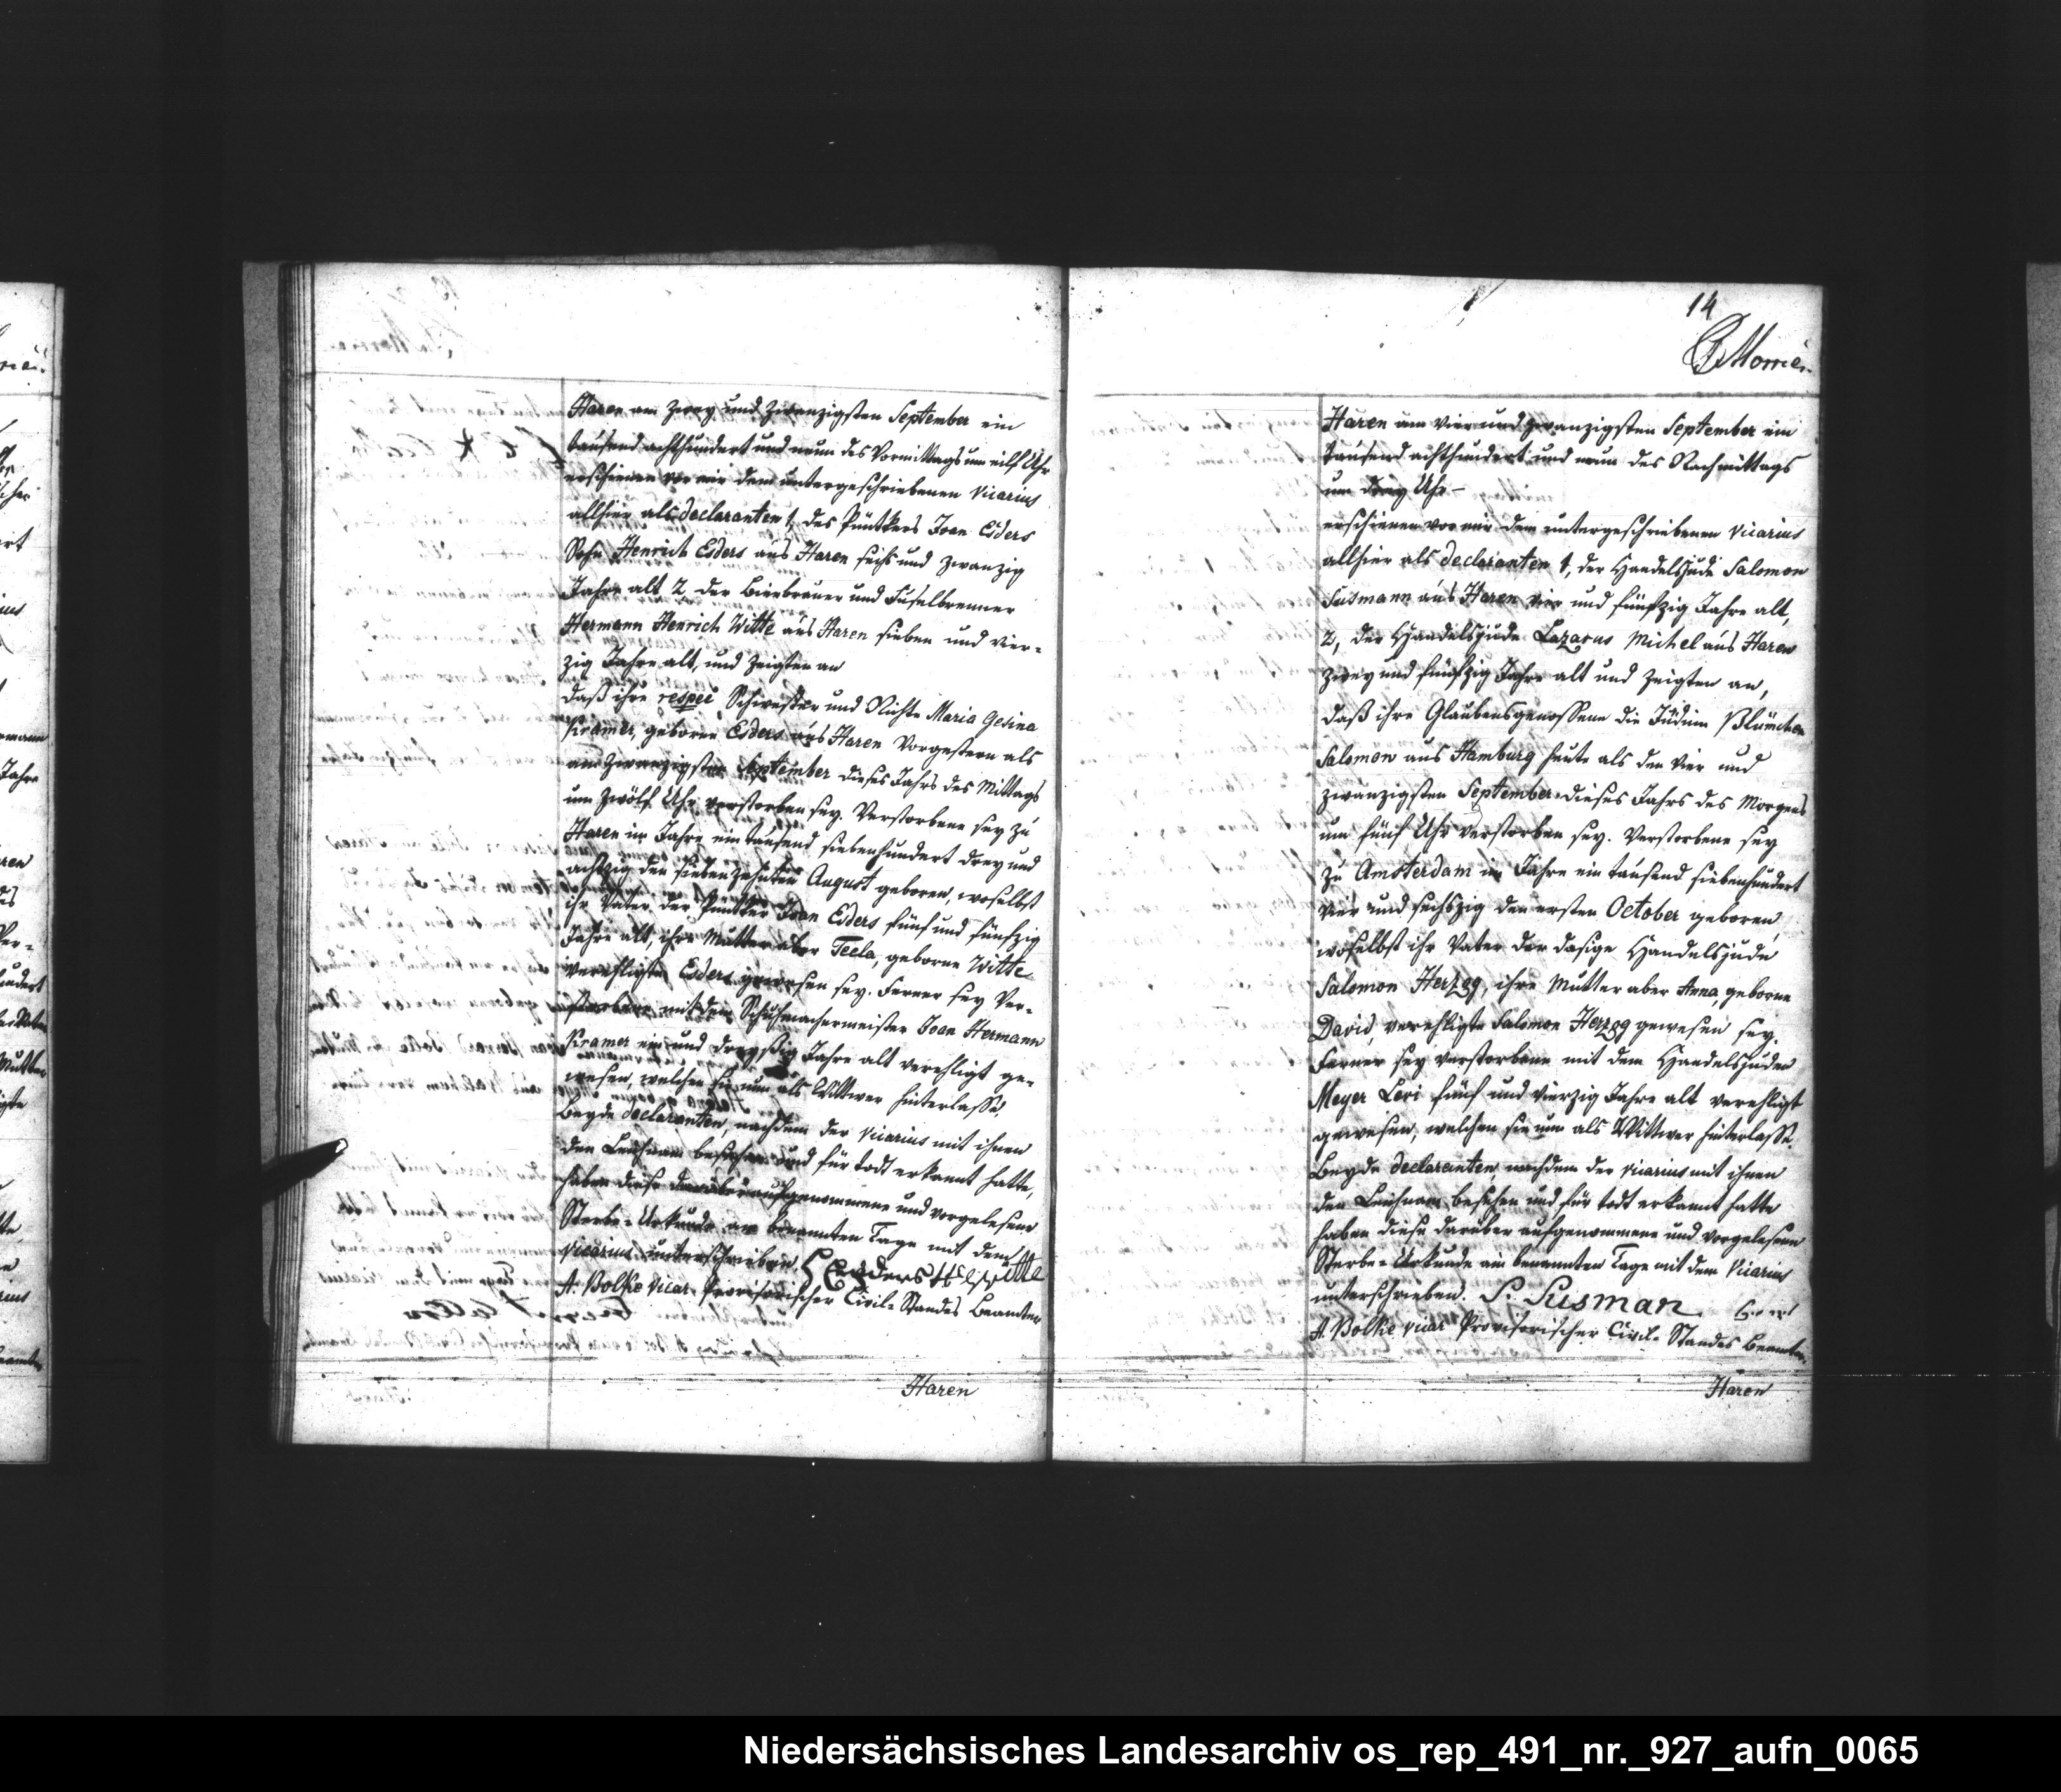 Haren am zwey und zwanzigsten September ein
tausend achthundert und neun des Vormittags um eilf Uhr
erschienen vor mir dem untergeschriebenen Vicarius
allhier als declaranten 1, des Püntkers Joan Esders
Sohn Henrich Esders aus Haren sechs und zwanzig
Jahre alt 2 der Bierbrauer und Fuselbrenner
Hermann Henrich Witte aus Haren sieben und vier-
zig Jahre alt, und zeigten an
daß ihre respec Schwester und Nichte Maria Gesina
Kramer, geborne Esders aus Haren vorgestern als
am zwanzigsten September dieses Jahrs des Mittags
um zwölf Uhr verstorben sey. Verstorbene sey zu
Haren im Jahre ein tausend siebenhundert drey und
achtzig den siebenzehnten August geboren, woselbst
ihr Vater der Püntker Joan Esders fünf und fünfzig
Jahre alt, ihre Mutter aber Tecla, geborne Witte
verehligte Esders gewesen sey. Ferner sey Ver-
storbene mit dem Schuhmachermeister Joan Hermann
Kramer ein und dreyßig Jahre alt verehligt ge-
wesen, welchen sie nun als Wittwer hinterlasse.
Beyde declaranten, nachdem der Vicarius mit ihnen
den Leichnam besehen und für todt erkannt hatte,
haben diese darüber aufgenommene und vorgelesene
Sterbe-Urkunde am benannten Tage mit dem
Vicarius unterschrieben. Esders Witte
A. Bolke Vicar. Provisorischer Civil-Standes Beamter
Haren
14
Morrien
Haren am vier und zwanzigsten September ein
tausend achthundert und neun des Nachmittags
um drey Uhr –
erschienen vor mir dem untergeschriebenen Vicarius
allhier als declaranten 1, der Handelsjude Salomon
Susmann aus Haren vier und fünfzig Jahre alt,
2, der Handelsjude Lazarus Michel aus Haren
zwey und fünfzig Jahre alt und zeigten an,
daß ihre Glaubensgenossene die Jüdinn Blümchen
Salomon aus Hamburg heute als den vier und
zwanzigsten September dieses Jahrs des Morgens
um fünf Uhr verstorben sey. Verstorbene sey
zu Amsterdam im Jahre ein tausend siebenhundert
vier und sechszig den ersten October geboren,
woselbst ihr Vater der dasige Handelsjude
Salomon Herzog, ihre Mutter aber Anna, geborne
David, verehligte Salomon Herzog gewesen sey.
Ferner sey Verstorbene mit dem Handelsjuden
Meyer Levi fünf und vierzig Jahre alt verehligt
gewesen, welchen sie nun als Wittwer hinterlasse.
Beyde declaranten, nachdem der Vicarius mit ihnen
den Leichnam besehen und für todt erkannt hatte
haben diese darüber aufgenommene und vorgelesene
Sterbe-Urkunde am benannten Tage mit dem Vicarius
unterschrieben. S. Susman
A. Bolke Vicar Provisorischer Civil-Standes Beamter
Haren
Niedersächsisches Landesarchiv os_rep_491_nr._927_aufn_0065